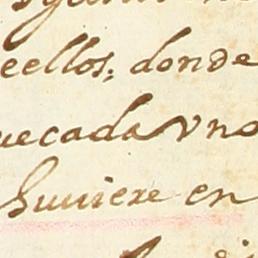 eellos, donde
uecada vno
huuiere en